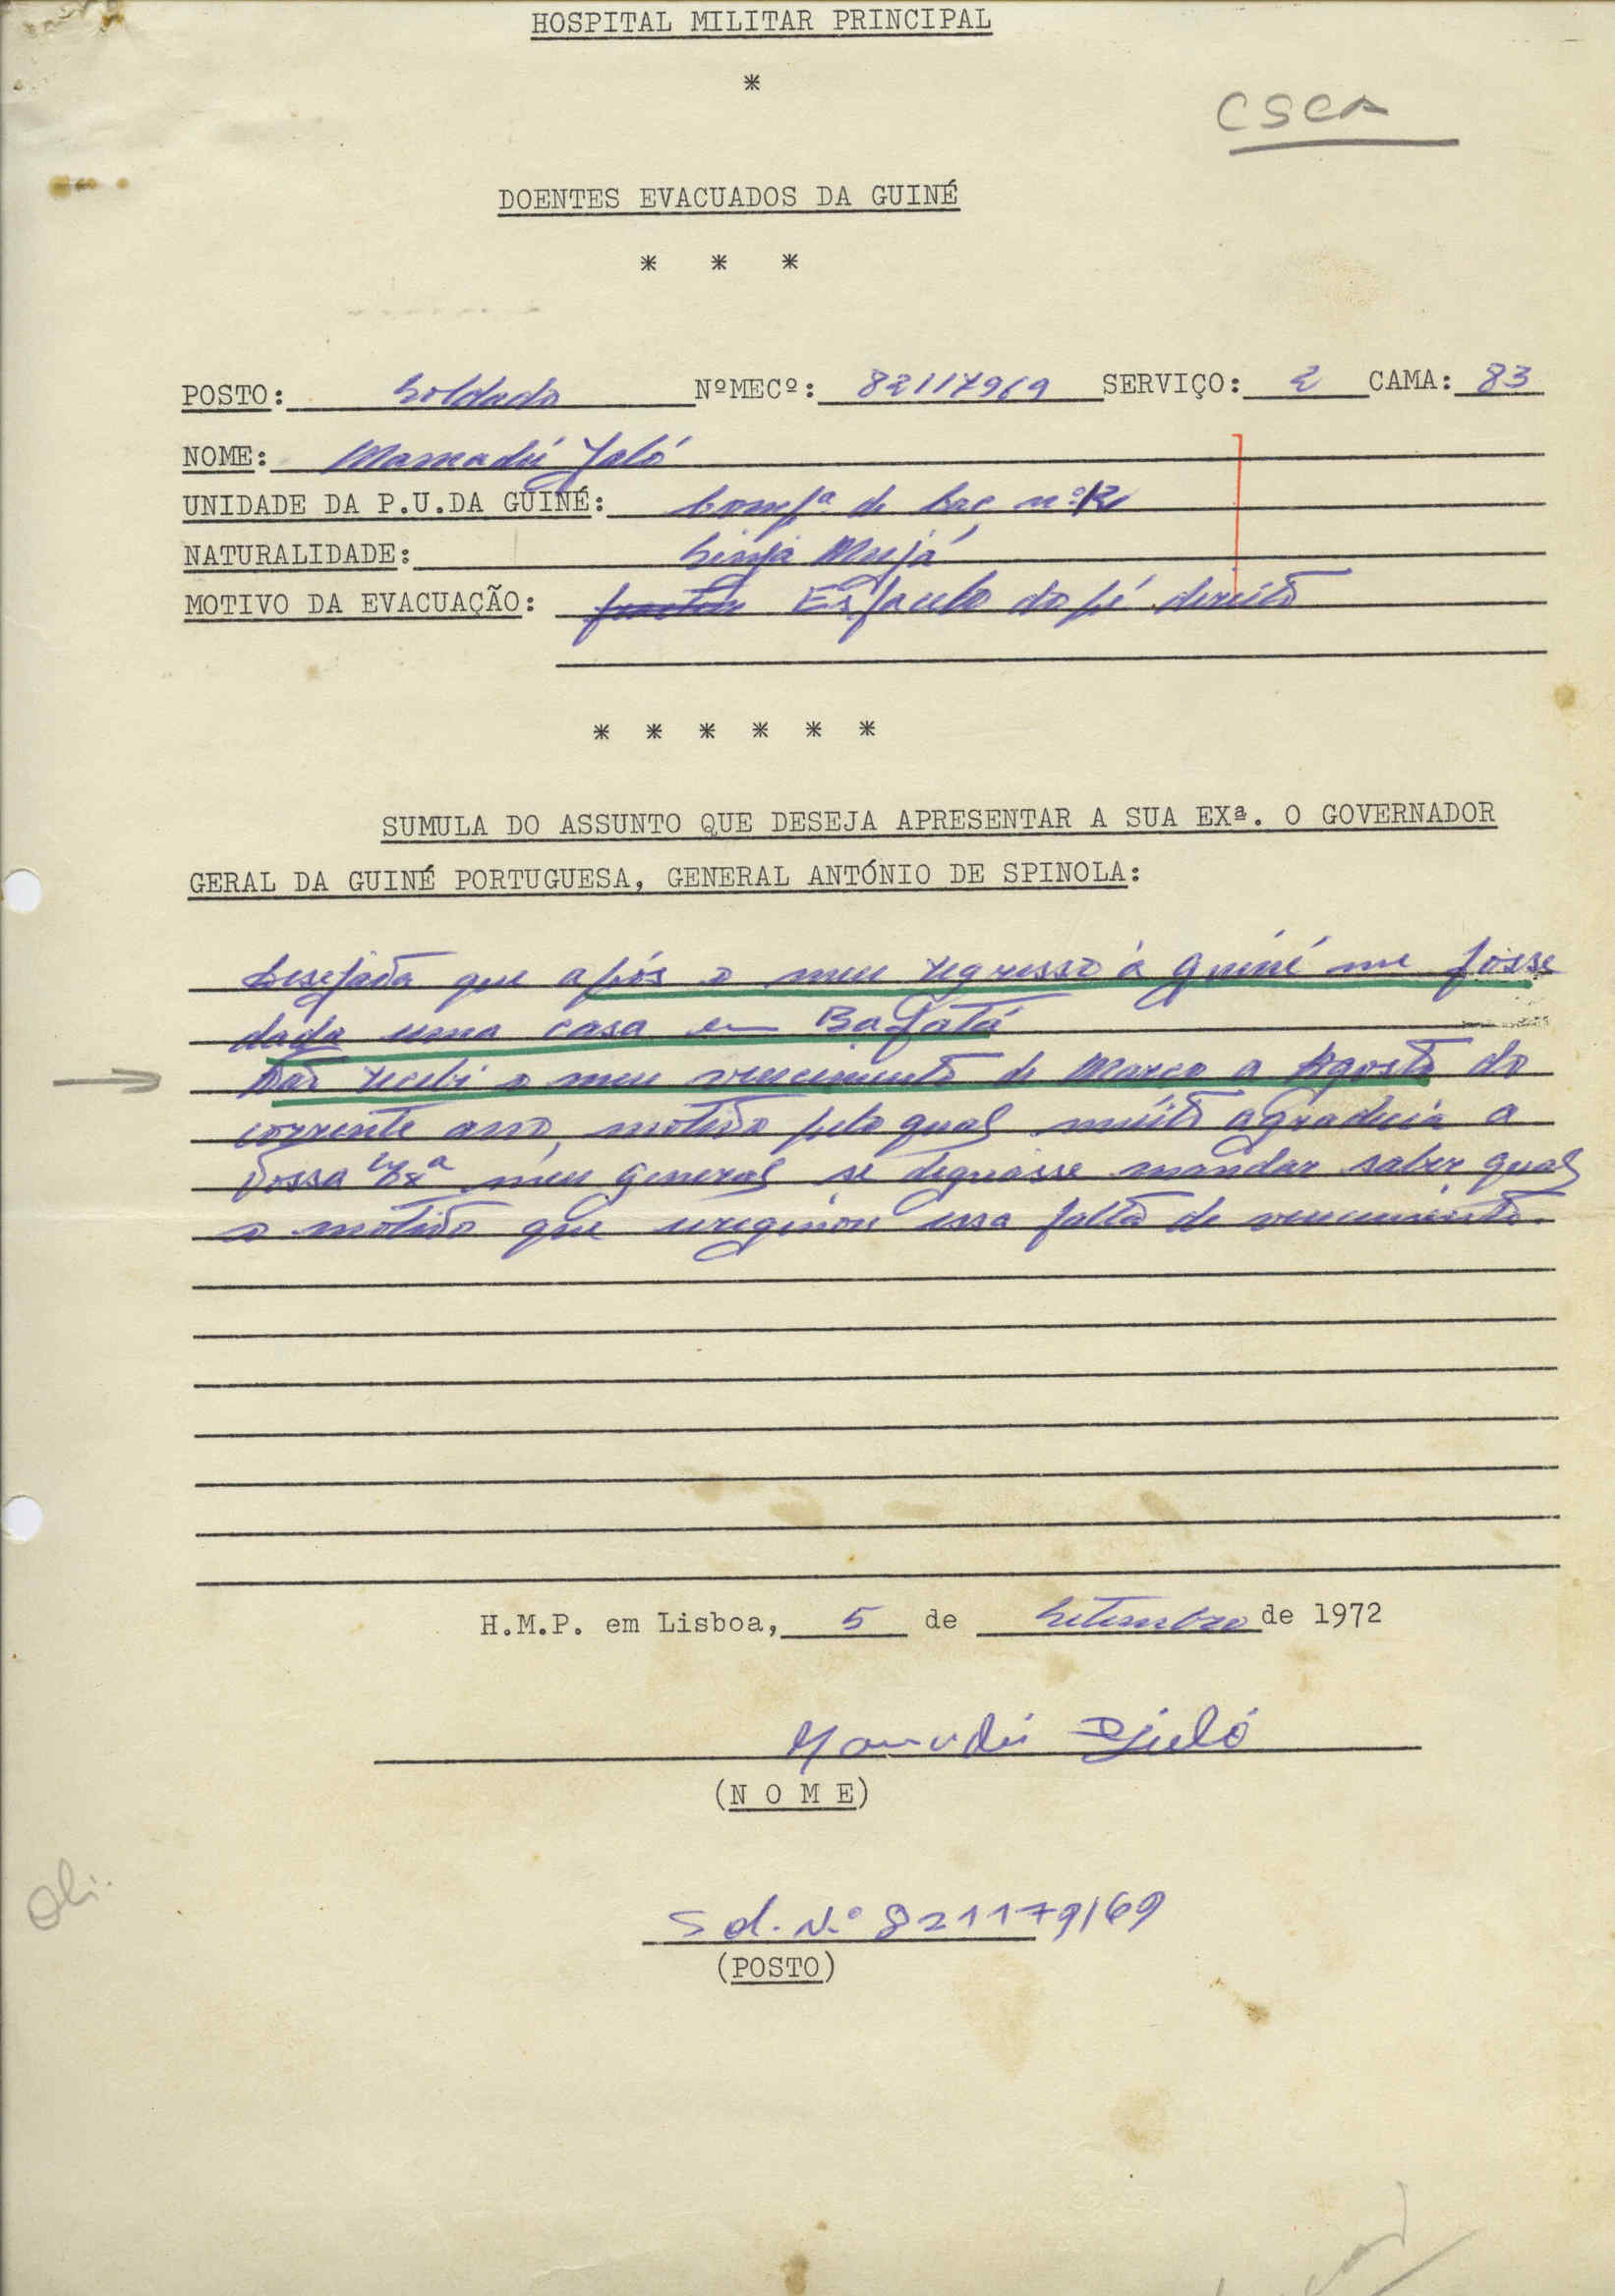 HOSPITAL MILITAR PRINCIPAL
*
CSCA
DOENTES EVACUADOS DA GUINÉ
* * *
POSTO: Soldado NºMECº: 82117969 SERVIÇO: 2 CAMA: 83
NOME: Mamadú Jaló
UNIDADE DA P.U.DA GUINÉ: Compª de Caç nº
NATURALIDADE:
MOTIVO DA EVACUAÇÃO: Esfacelo do pé direito
* * * * * *
SUMULA DO ASSUNTO QUE DESEJA APRESENTAR A SUA EXª. O GOVERNADOR
GERAL DA GUINÉ PORTUGUESA, GENERAL ANTÓNIO DE SPINOLA:
Desejava que após o meu regresso à Guiné me fosse
dada uma casa em Bafatá
Não recebi o meu vencimento de Março a Agosto do
corrente ano, motivo pelo qual muito agradecia a
Vossa Exª meu General se dignasse mandar saber qual
o motivo que originou essa falta de vencimento.
H.M.P. em Lisboa, 5 de Setembro de 1972
Mamadú Djaló
(N O M E)
Sol. N.º 821179/69
(POSTO)